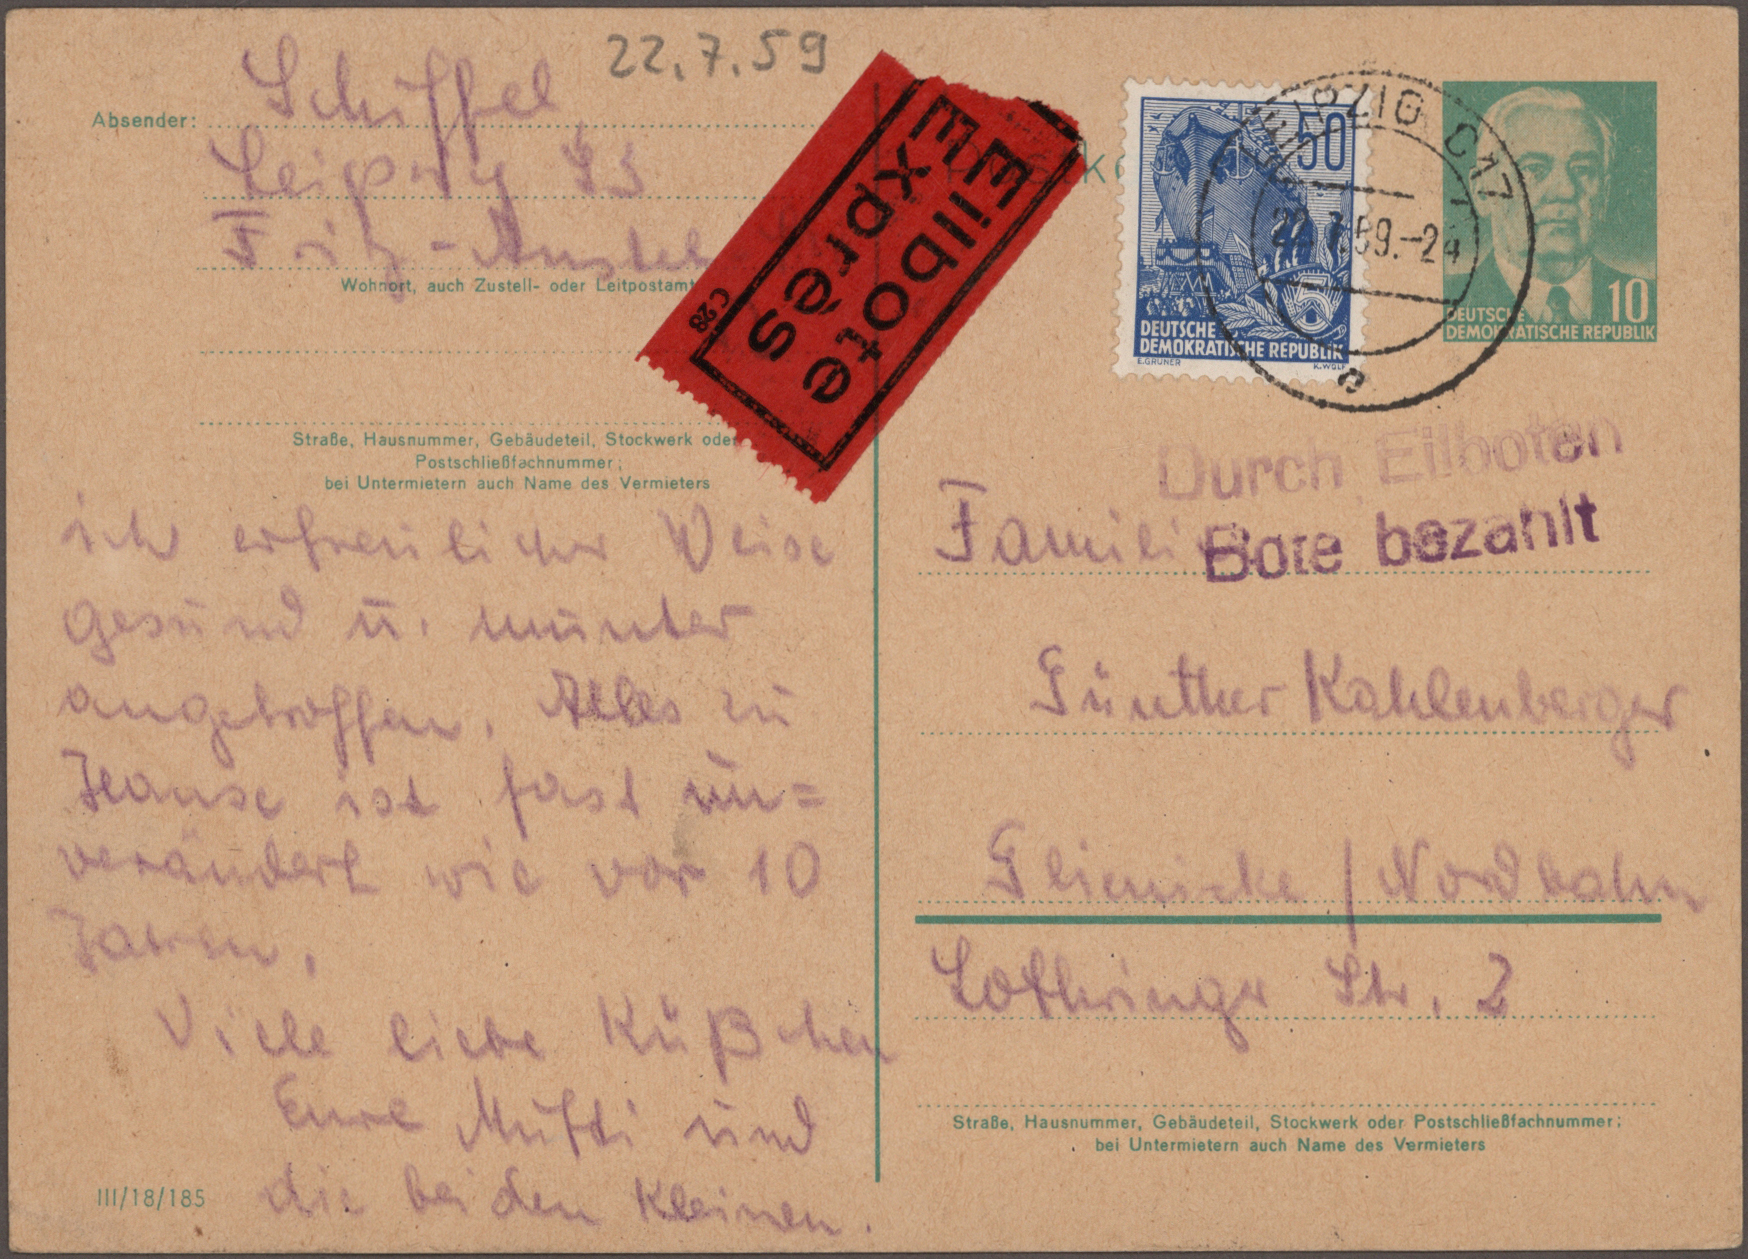 22.7.59
Absender: Schiffel
Leipzig
Fritz-
Wohnort, auch Zustell- oder Leitpostamt
Straße, Hausnummer, Gebäudeteil, Stockwerk oder
Postschließfachnummer;
bei Untermietern auch Name des Vermieters
Eilbote
Exprès
C 28
50
5
DEUTSCHE
DEMOKRATISCHE REPUBLIK
E.GRUNER
K.WOLF
LEIPZIG C17
22.7.59.-24
e
10
DEUTSCHE
DEMOKRATISCHE REPUBLIK
ich erfreulicher Weise
gesund u. munter
angetroffen. Alles zu
Hause ist fast un=
verändert wie vor 10
Jahren.
Viele liebe Küßchen
Eure Mutti und
die beiden Kleinen.
III/18/185
Durch Eilboten
Bote bezahlt
Familie
Günther Kahlenberger
Glienicke / Nordbahn
Lothringer Str. 2
Straße, Hausnummer, Gebäudeteil, Stockwerk oder Postschließfachnummer;
bei Untermietern auch Name des Vermieters